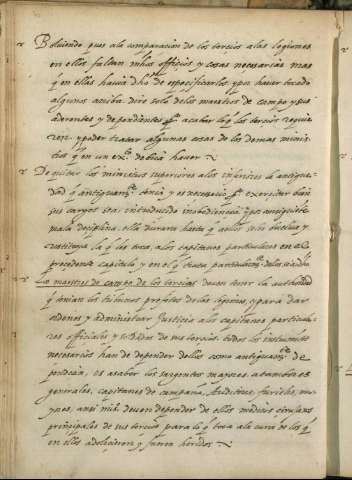 Bolviendo pues ala comparacion de los tercios a las legiones
en ellos faltan mhos officios y cosas necesarias mas
q̃ en ellas havia dho de especificarlos, y por haver tocado
algunos arriba dire solo delos maestros de campo y sus
aderentes y dependientes p.ª acabar lo q̃ los tercios requie
ren y poder tratar algunas cosas de los demas minis
tros q̃ en un ex.to debria haver
De quitar los ministros superiores alos inferiores la antigue
dad q̃ antiguam.te tenia y es necessario p.ª exercitar bien
sus cargos sea introducido inobediencia
mala diciplina, ella durara hasta q̃ aellos se les buelva y
restituya la q̃ les toca alos capitanes particulares en el
precedente capitulo y en el q̃ trata particularm.te
Los maestros de campo de los tercios deven tener la autoridad
q̃ tenian los tribunos prefetos de las legiones, y para dar
ordenes y administrar justicia alos capitanes particula
res officiales y soldados de sus tercios, todos los instrumētos
necesarios han de depender dellos como antiguam.te de
pendian, es asaber los sargentos mayores, atambores
generales, capitanes de campaña, Auditores, furieles,
ansi mis.º deven depender de ellos medicos cirujanos
principales de sus tercios para lo q̃ toca ala cura de los q̃
en ellos adolecieren y fueren heridos